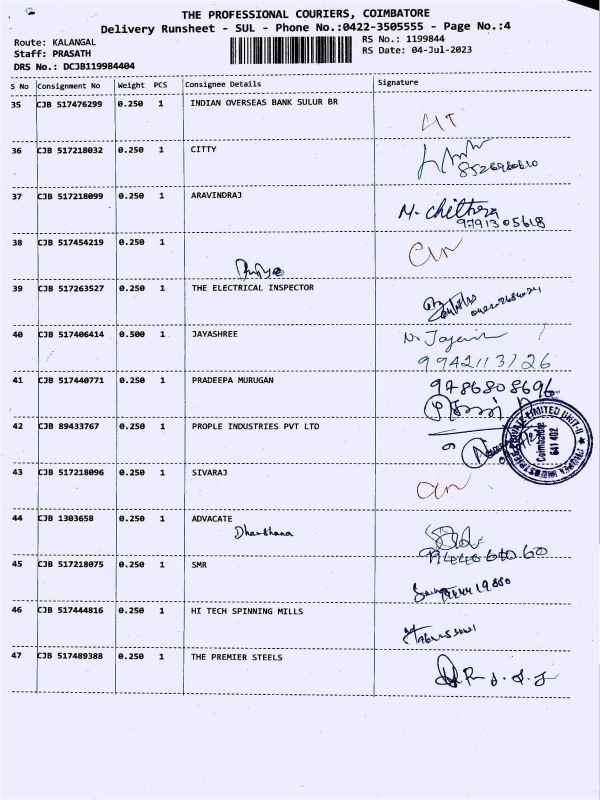 THE PROFESSIONAL COURIERS, COIMBATORE
Delivery Runsheet - SUL - Phone No.:0422-3505555 - Page No.:4
Route: KALANGAL
RS No.: 1199844
Staff: PRASATH
RS Date: 04-Jul-2023
DRS No.: DCJB119984404
S No Consignment No Weight PCS Consignee Details Signature
35 CJB 517476299 0.250 1 INDIAN OVERSEAS BANK SULUR BR
36 CJB 517218032 0.250 1 CITTY
37 CJB 517218099 0.250 1 ARAVINDRAJ
M. Chithra
9791305618
38 CJB 517454219 0.250 1
39 CJB 517263527 0.250 1 THE ELECTRICAL INSPECTOR
40 CJB 517406414 0.500 1 JAYASHREE
9942113126
41 CJB 517440771 0.250 1 PRADEEPA MURUGAN
9786808696
42 CJB 89433767 0.250 1 PROPLE INDUSTRIES PVT LTD
Coimbatore
641 402
43 CJB 517218096 0.250 1 SIVARAJ
44 CJB 1303658 0.250 1 ADVOCATE
Dharshana
45 CJB 517218075 0.250 1 SMR
46 CJB 517444816 0.250 1 HI TECH SPINNING MILLS
47 CJB 517489388 0.250 1 THE PREMIER STEELS